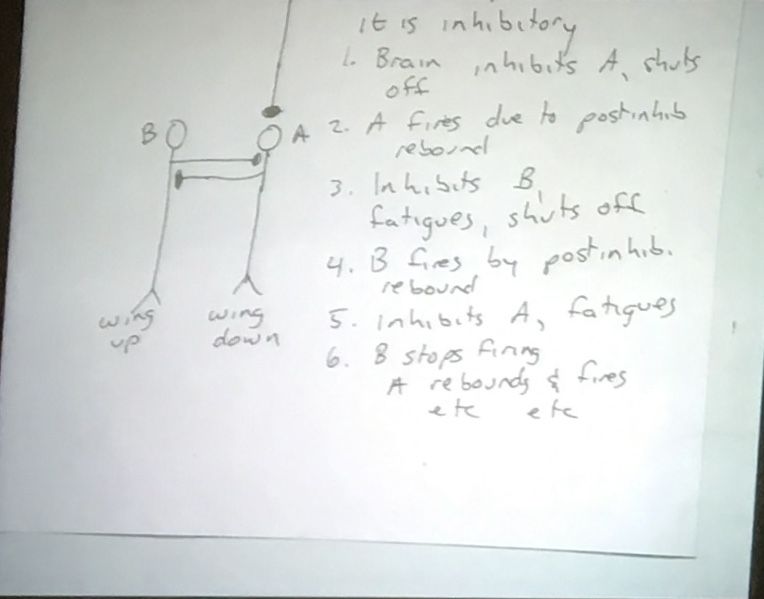 it is inhibitory
1. Brain inhibits A, shuts
off
B
A
2. A fires due to postinhib
rebound
3. Inhibits B,
fatigues, shuts off
4. B fires by postinhib.
rebound
5. inhibits A, fatigues
6. B stops firing
A rebounds & fires
etc etc
wing
up
wing
down